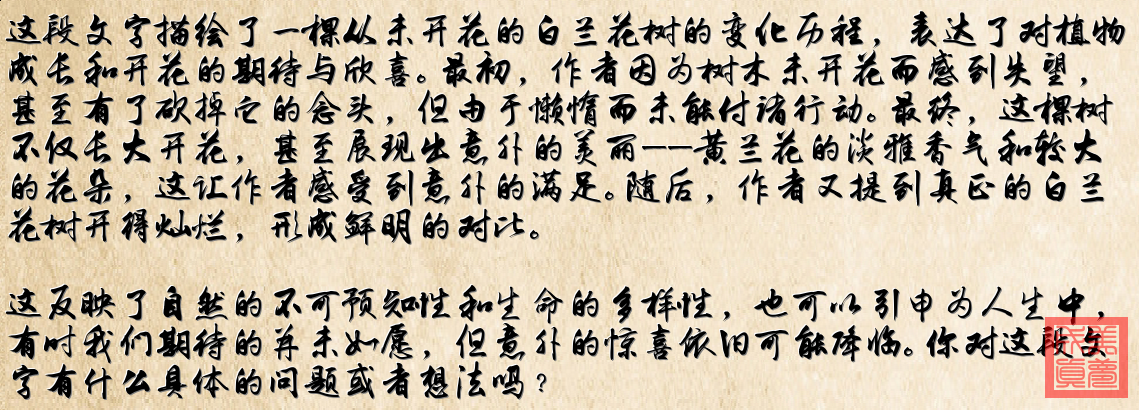 这段文字描绘了一棵从未开花的白兰花树的变化历程，表达了对植物
成长和开花的期待与欣喜。最初，作者因为树木未开花而感到失望，
甚至有了砍掉它的念头，但由于懒惰而未能付诸行动。最终，这棵树
不仅长大开花，甚至展现出意外的美丽——黄兰花的淡雅香气和较大
的花朵，这让作者感受到意外的满足。随后，作者又提到真正的白兰
花树开得灿烂，形成鲜明的对比。
这反映了自然的不可预知性和生命的多样性，也可以引申为人生中，
有时我们期待的并未如愿，但意外的惊喜依旧可能降临。你对这段文
字有什么具体的问题或者想法吗？